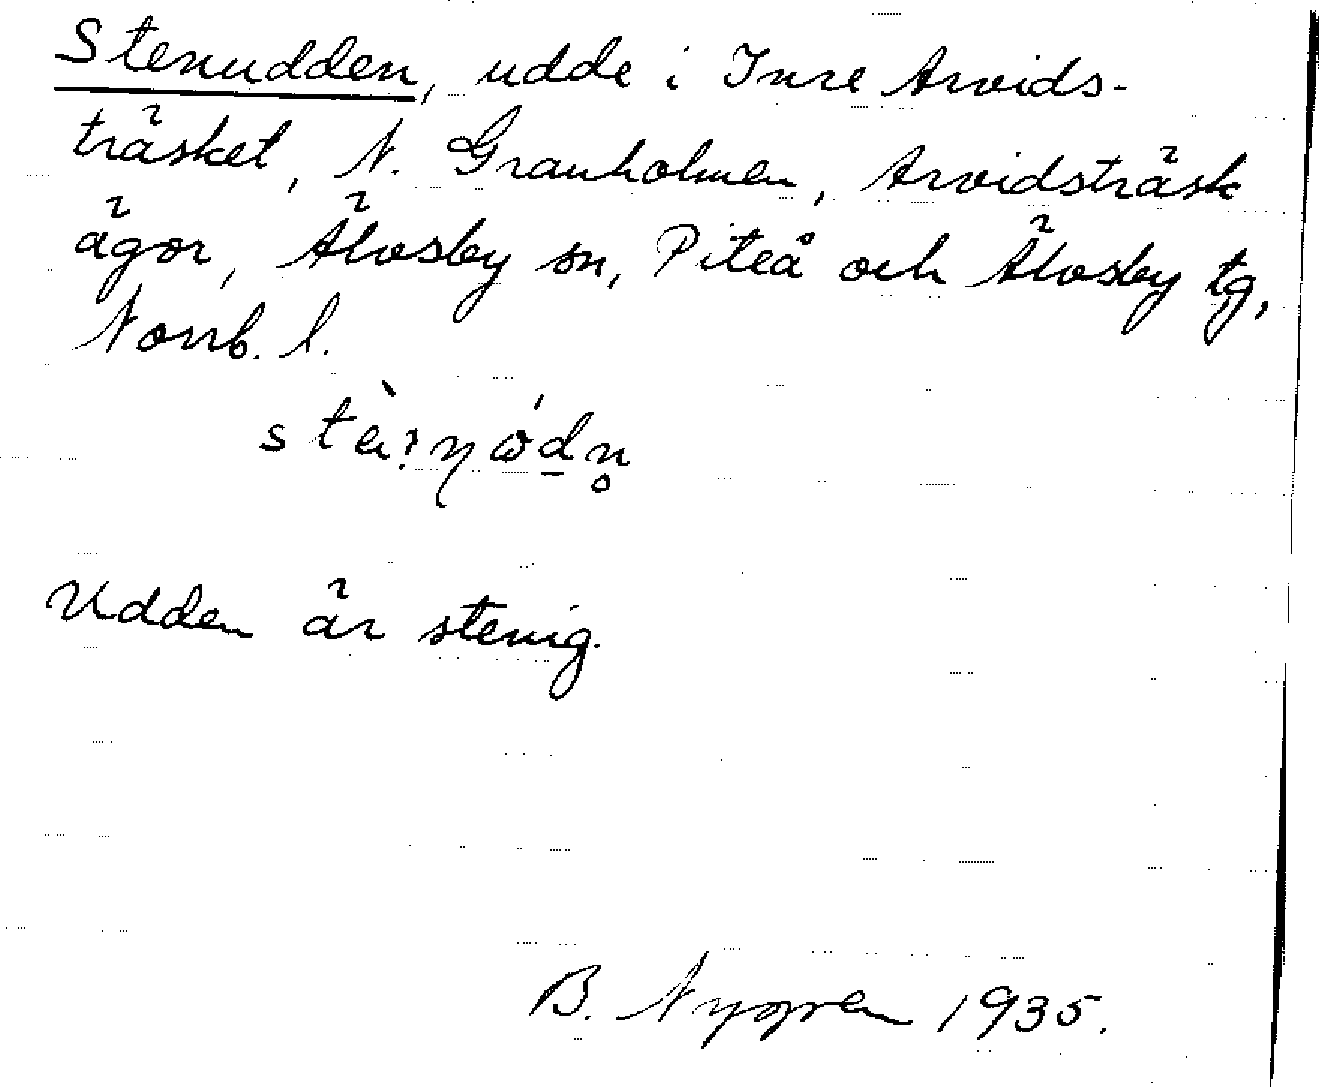 Stenudden, udde i Inre Arvids-
träsket, N. Granholmen, Arvidsträsk
ägor, Älvsby sn, Piteå och Älvsby tg,
Norrb. l.
Udden är stenig.
B. Nygren 1935.